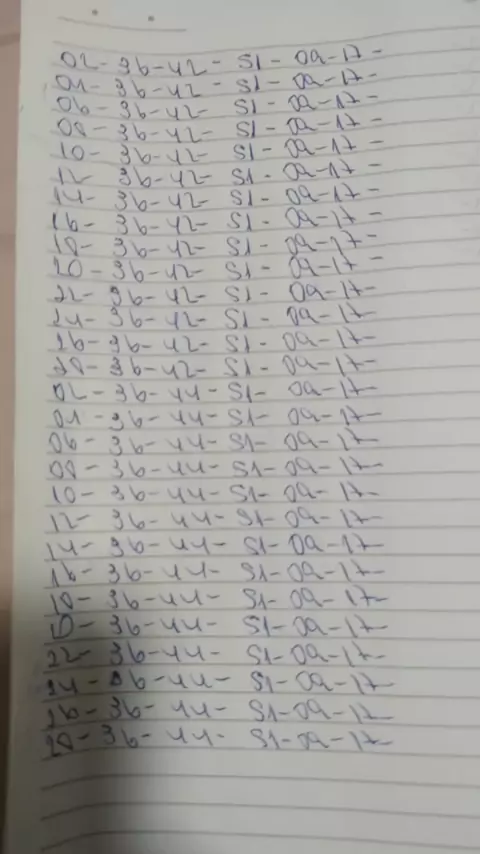 02-36-42-51-09-17-
04-36-42-51-09-17-
06-36-42-51-09-17-
08-36-42-51-09-17-
10-36-42-51-09-17-
12-36-42-51-09-17-
14-36-42-51-09-17-
16-36-42-51-09-17-
18-36-42-51-09-17-
20-36-42-51-09-17-
22-36-42-51-09-17-
24-36-42-51-09-17-
26-36-42-51-09-17-
28-36-42-51-09-17-
02-36-44-51-09-17-
04-36-44-51-09-17-
06-36-44-51-09-17-
08-36-44-51-09-17-
10-36-44-51-09-17-
12-36-44-51-09-17-
14-36-44-51-09-17-
16-36-44-51-09-17-
18-36-44-51-09-17-
20-36-44-51-09-17-
22-36-44-51-09-17-
24-36-44-51-09-17-
26-36-44-51-09-17-
28-36-44-51-09-17-